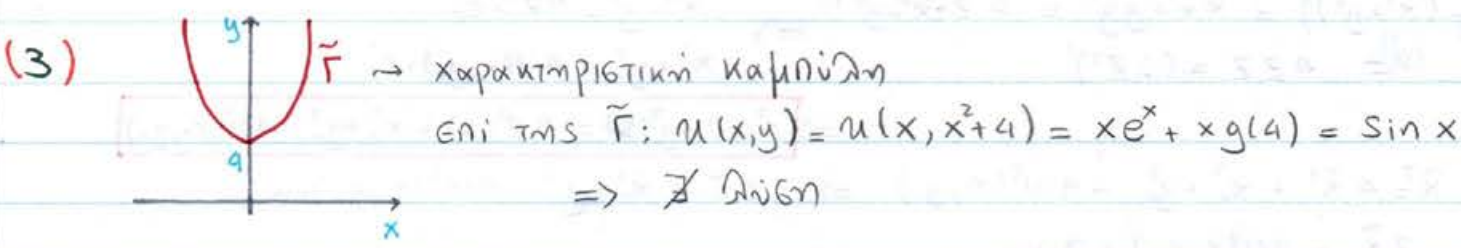 (3) y Γ̃ → χαρακτηριστική καμπύλη
επί της Γ̃: u(x,y) = u(x, x²+4) = xeˣ + xg(4) = sin x
4
=> ∄ λύση
x